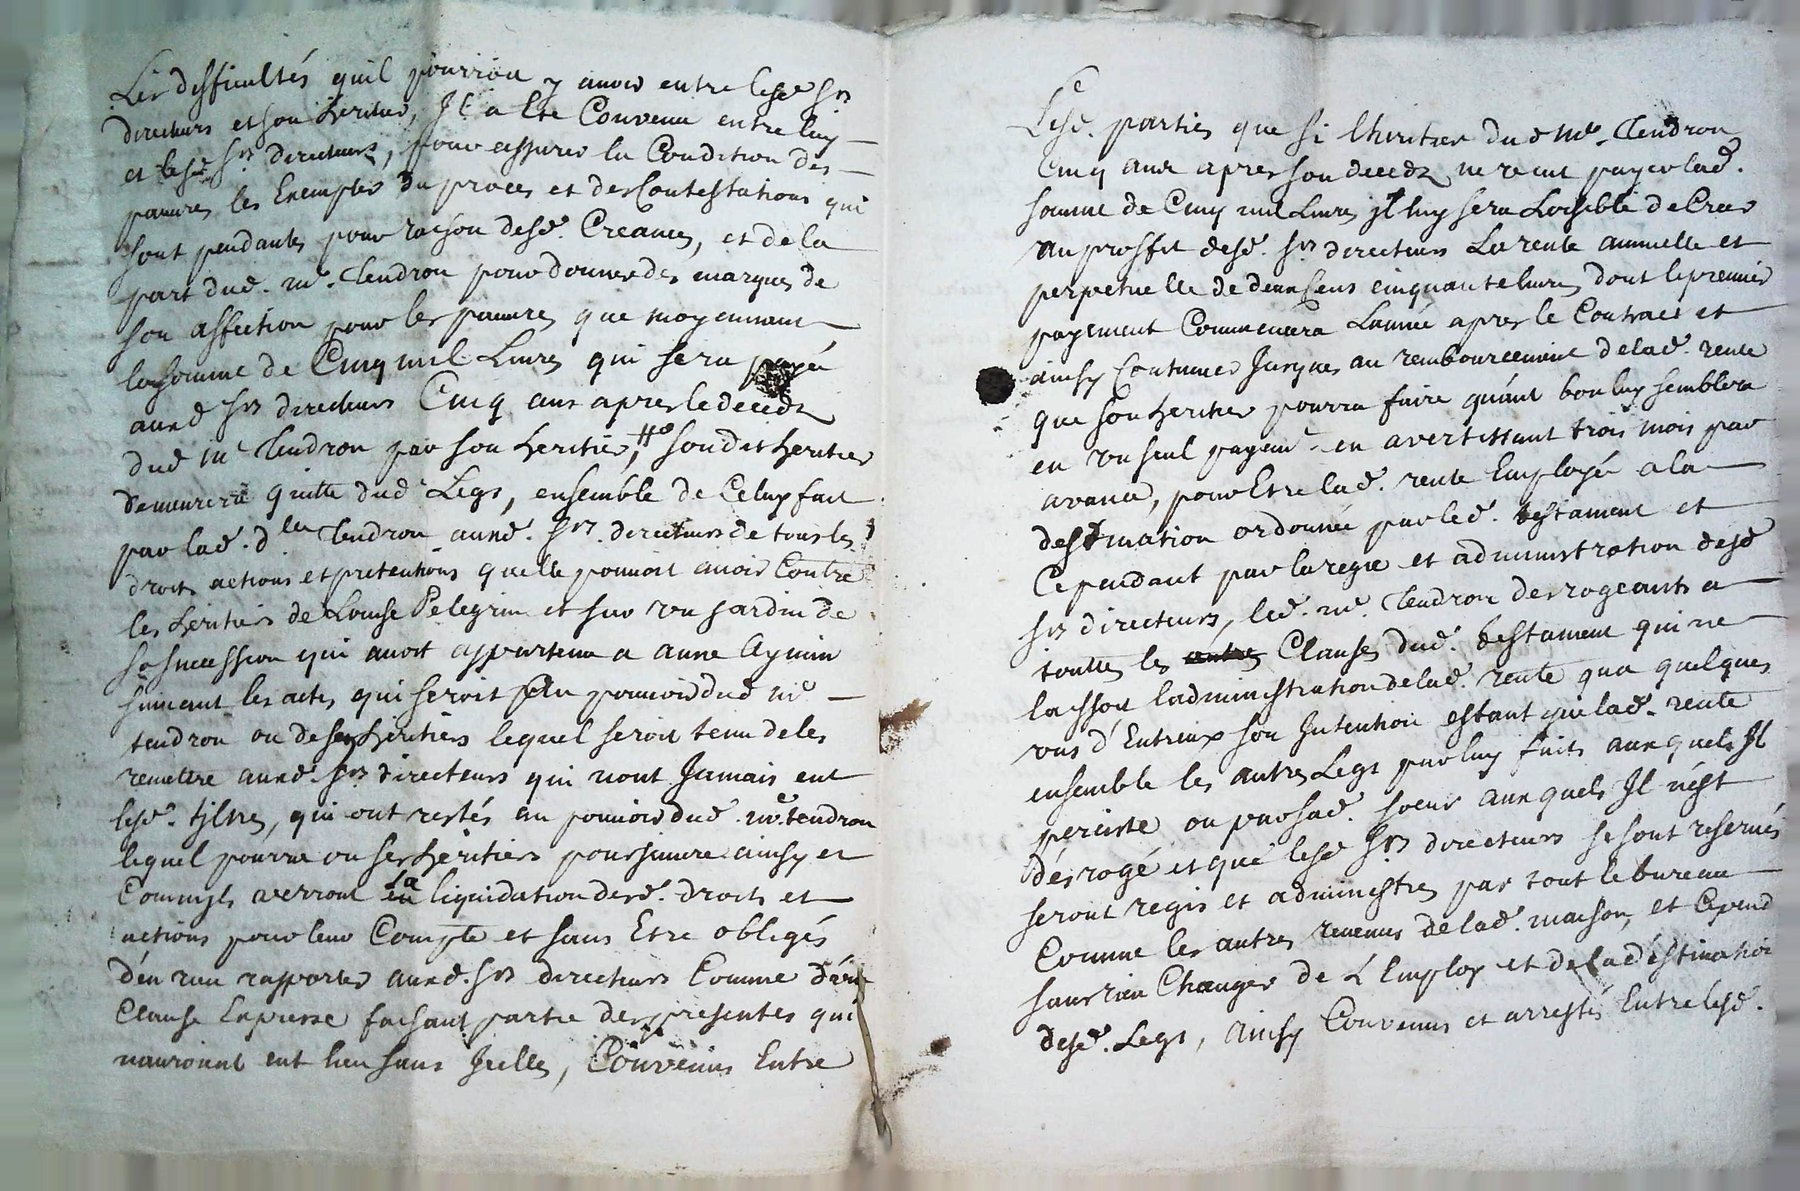 Les difficultés quil pourroit y avoir entre lesd. srs
directeurs et son heritier, Il a Ete Convenu entre luy
et lesd srs directeurs, pour assurer la Condition des
pauvres les Exempter du proces et des Contestations qui
sont pendantes pour raison desd. Creances, et de la
part dud. me. tendron pour donner des marques de
son affection pour les pauvres que moyennant
la somme de Cinq mil Livres qui sera payée
auxd srs directeurs Cinq ans apres le decedz
dud me tendron par son heritier, sondit heritier
demeurera quitte dud Legs, ensemble de Celuy fait
par lad. dlle tendron auxd. srs. directeurs de tous les
droits actions et pretentions quelle pouvoit avoir Contre
les heritiers de Louise Pelegrin et sur un jardin de
sa succession qui avoit appartenu a anne Aymin
suivant les actes qui seroit au pouvoir dud me
tendron ou de ses heritiers lequel seroit tenu de les
remettre auxd. srs directeurs qui nont Jamais eut
lesd. titres, qui ont restés au pouvoir dud. me. tendron
lequel pourra ou ses heritiers poursuivre ainsy et
Comm'ils verront la liquidation desd. droits et
actions pour leur Compte et sans Etre obligés
d'en rien rapporter auxd. srs directeurs Comme d'une
Clause Expresse faisant partie des presentes qui
nauroient eut lieu sans Icelles, Convenus Entre
Lesd. parties que si lheritier dud me. tendron
Cinq ans apres son decedz ne veut payer lad.
somme de Cinq mil Livres Il luy sera Loisible de Creer
au proffit desd. srs directeurs La rente annuelle et
perpetuelle de deux Cens cinquante livres dont le premier
payement Commencera Lannée apres le Contract et
ainsy Continuer Jusques au remboursement de lad. rente
que son heritier pourra faire quánt bon luy semblera
en un seul payemt. en avertissant trois mois par
avance, pour Etre lad. rente Employée a la
destination ordonnée par led. testament et
Cependant par la regie et administration desd
srs directeurs, led. me. tendron derrogeants a
toutes les Clauses dud. testament qui ne
laissoit ladministration de lad. rente qua quelques
uns d'Entreux son Intention estant que lad. rente
ensemble les autres Legs par luy faits auxquels Il
persiste ou par sad. soeur auxquels Il n'est
dérrogé et que lesd srs directeurs se sont reservés
seront regis et administrés par tout le bureau
Comme les autres revenus de lad. maison, et Cepend
sans rien Changer de L'Employ et de la déstination
desd. Legs, Ainsy Convenus et arrestés Entre lesd.